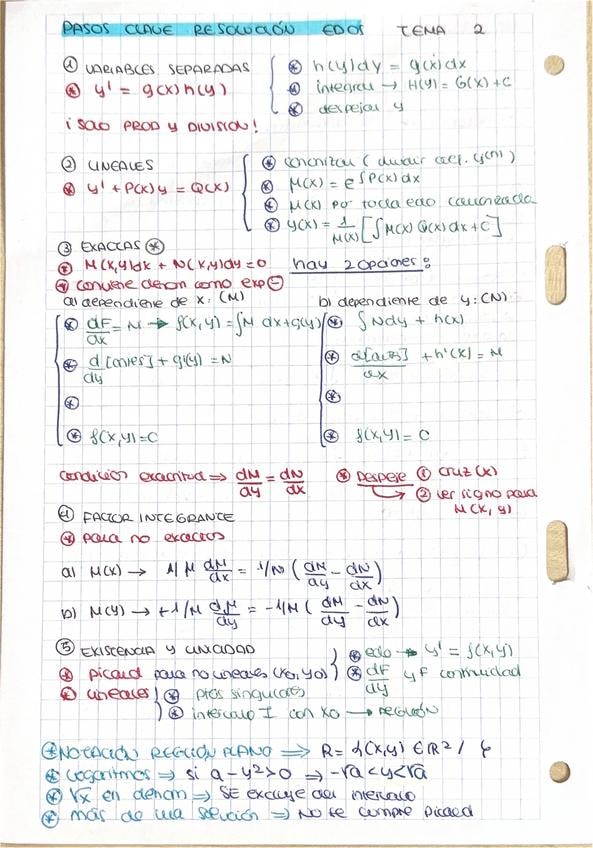 PASOS CLAVE RESOLUCIÓN EDOS TEMA 2
① VARIABLES SEPARADAS
* y' = g(x) h(y)
¡SOLO PROD Y DIVISIÓN!
* h(y)dy = g(x)dx
* integrar → H(y) = G(x) + C
* despejar y
② LINEALES
* y' + P(x)y = Q(x)
* canonizar (dividir coef. y(n))
* μ(x) = e^∫P(x)dx
* μ(x) por toda edo canonizada
* y(x) = 1/μ(x) [∫μ(x) Q(x)dx + C]
③ EXACTAS *
* M(x,y)dx + N(x,y)dy = 0 hay 2 opciones:
* conviene denom como exp ⊖
a) dependiente de x: (M)
* dF/dx = M → f(x,y) = ∫M dx + g(y)
* d[antes]/dy + g'(y) = N
*
* f(x,y) = C
b) dependiente de y: (N)
* ∫N dy + h(x)
* d[antes]/dx + h'(x) = M
*
* f(x,y) = C
condición exactitud ⇒ dM/dy = dN/dx
* Despeje ① cruz (x)
② ver signo para M(x,y)
④ FACTOR INTEGRANTE
* para no exactas
a) μ(x) → 1/μ dμ/dx = 1/N (dM/dy - dN/dx)
b) μ(y) → +1/μ dμ/dy = -1/M (dM/dy - dN/dx)
⑤ EXISTENCIA Y UNICIDAD
* picard para no lineales (x0, y0)
* edo → y' = f(x,y)
* dF/dy y F continuidad
* lineales
* ptos singulares
* intervalo I con x0 → REGIÓN
* NOTACIÓN REGIÓN PLANO ⇒ R = {(x,y) ∈ R² / }
* logaritmos ⇒ si a - y² > 0 ⇒ -√a < y < √a
* √x en denom ⇒ SE excluye del intervalo
* más de una solución ⇒ NO te cumple picard